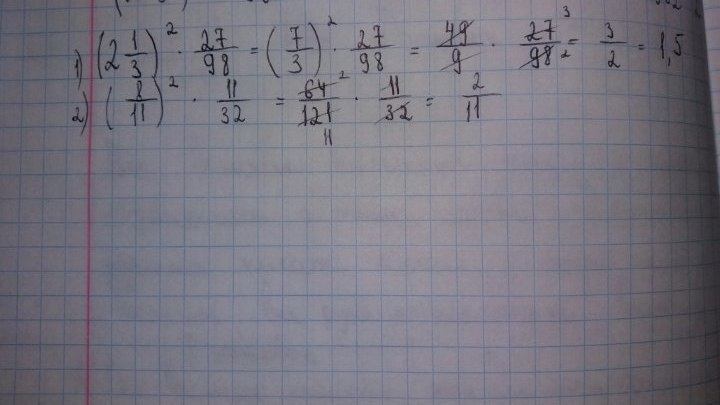 1) (2 1/3)² · 27/98 = (7/3)² · 27/98 = 49/9 · 27/98 = 3/2 = 1,5
2) (8/11)² · 11/32 = 64/121 · 11/32 = 2/11